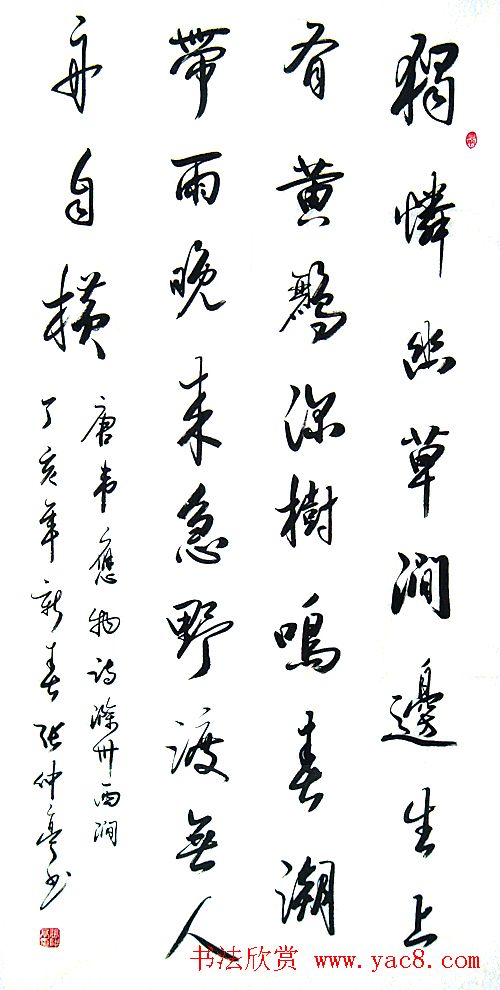 獨憐幽草澗邊生上
有黃鸝深樹鳴春潮
帶雨晚來急野渡無人
舟自橫
唐韋應物詩滁州西澗
丁亥年新春張仲亭書
书法欣赏 www.yac8.com